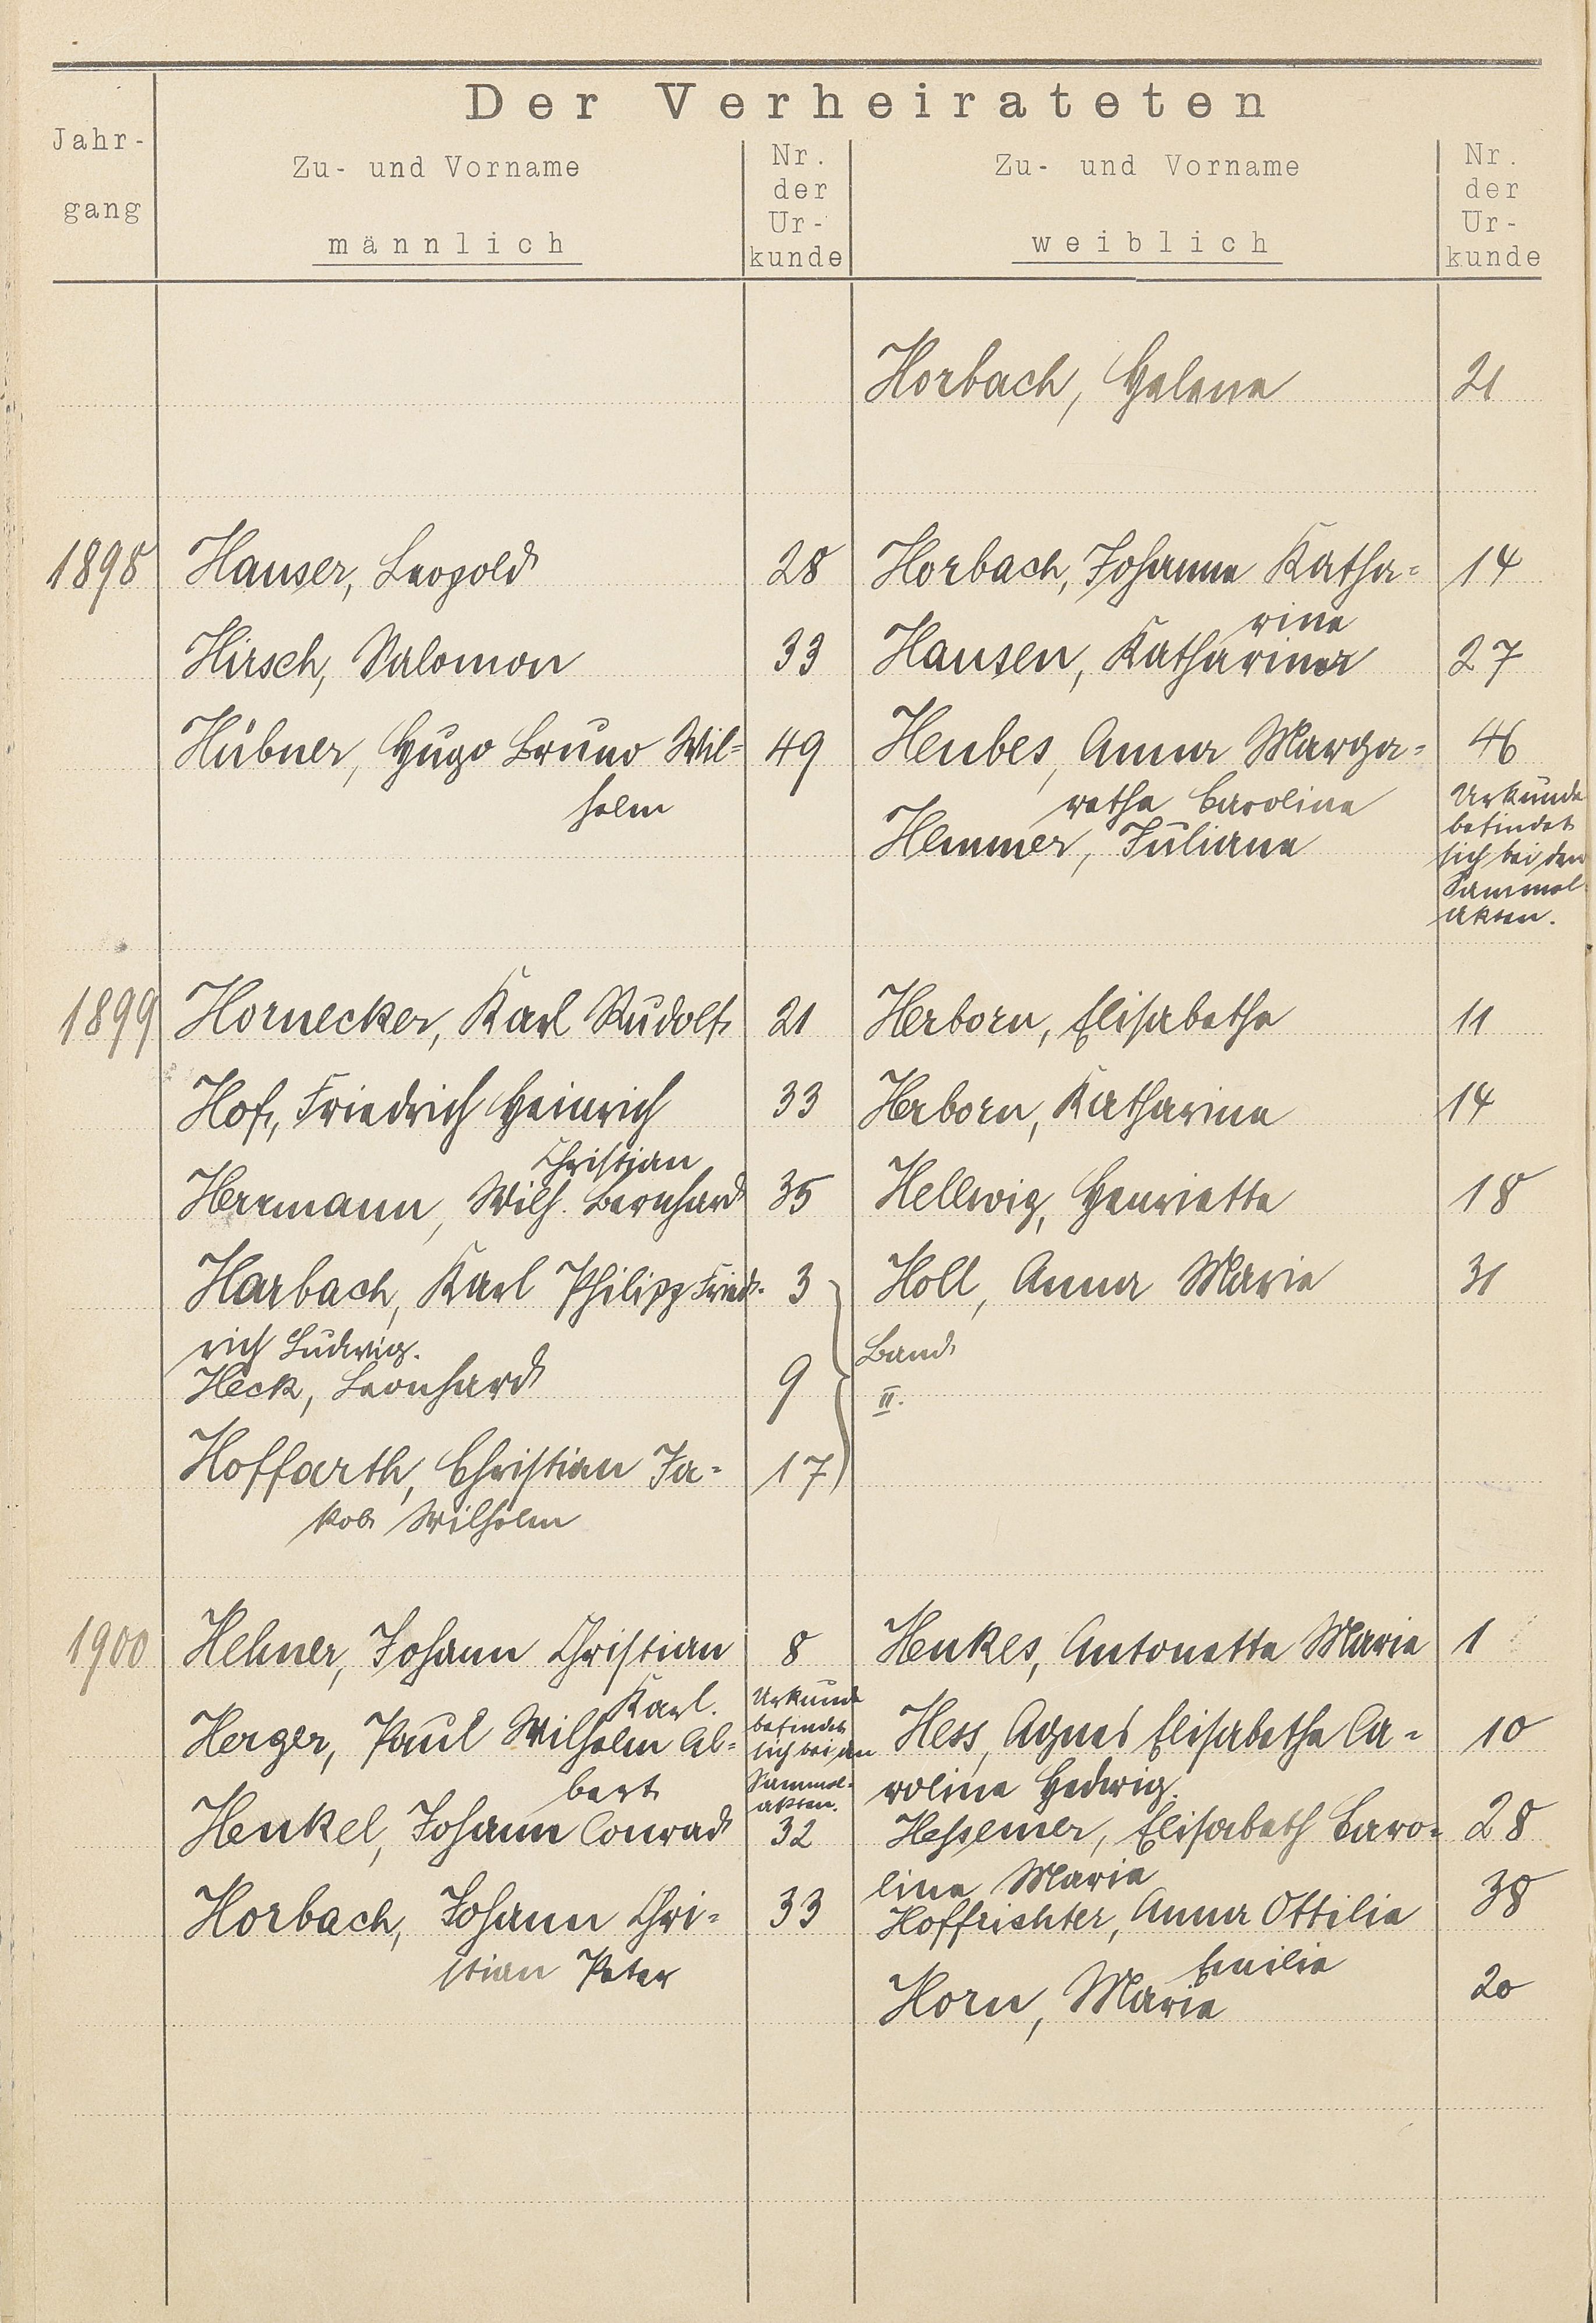 Der Verheirateten
Jahr-
gang
Zu- und Vorname
männlich
Nr.
der
Ur-
kunde
Zu- und Vorname
weiblich
Nr.
der
Ur-
kunde
Horbach, Helene 21
1898 Hauser, Leopold 28 Horbach, Johanna Katha-
rine 14
Hirsch, Salomon 33 Hansen, Katharina 27
Hübner, Hugo Bruno Wil-
helm 49 Heubes, Anna Marga-
rethe Caroline 46
Hemmer, Juliane Urkunde
befindet
sich bei den
Sammel-
akten.
1899 Hornecker, Karl Rudolf 21 Herborn, Elisabethe 11
Hof, Friedrich Heinrich
Christian 33 Herborn, Katharina 14
Herrmann, Wilh. Bernhard 35 Hellwig, Henriette 18
Harbach, Karl Philipp Fried-
rich Ludwig. 3 Holl, Anna Marie 31
Heck, Leonhard 9 Band
II.
Hoffarth, Christian Ja-
kob Wilhelm 17
1900 Hehner, Johann Christian
Karl. 8 Henkes, Antonette Marie 1
Herger, Paul Wilhelm Al-
bert Urkunde
befindet
sich bei den
Sammel-
akten. Hess, Agnes Elisabethe Ca-
roline Hedwig. 10
Henkel, Johann Conrad 32 Hessemer, Elisabeth Caro-
line Marie 28
Horbach, Johann Chri-
stian Peter 33 Hoffrichter, Anna Ottilie
Emilie 38
Horn, Marie 20